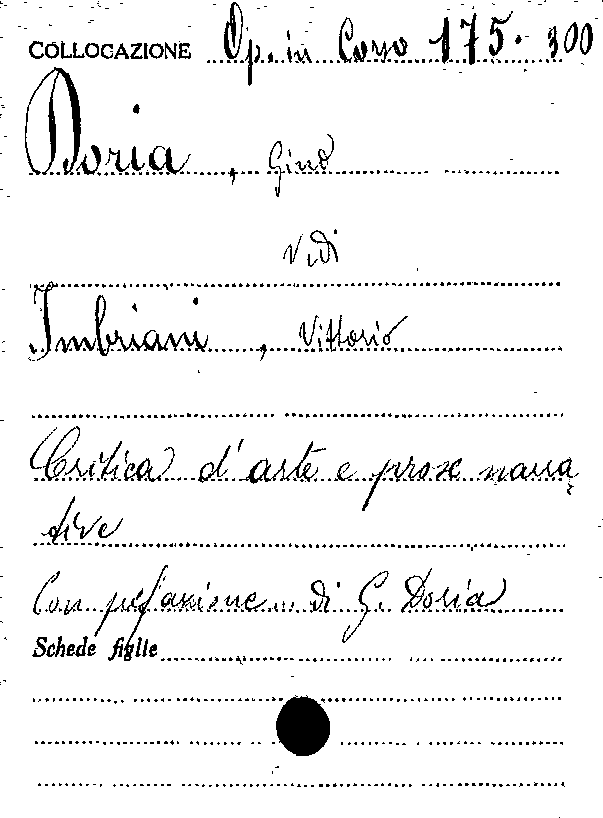 COLLOCAZIONE Op. in Corso 175. 300
Doria, Gino
Vidi
Imbriani, Vittorio
Critica d'arte e prose narra
tive
Con prefazione... di G. Doria
Schede figlie